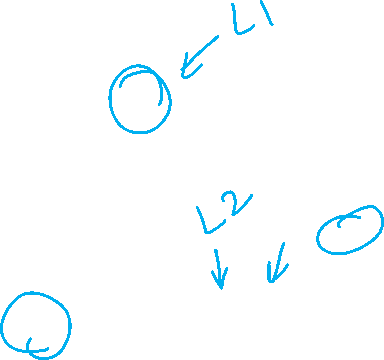 L1
L2